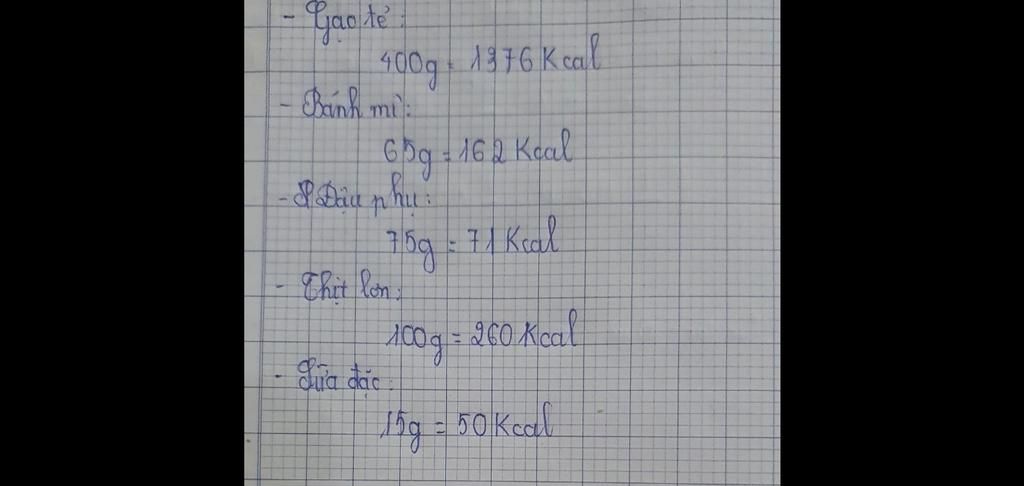 - Gạo tẻ:
400g = 1376 Kcal
- Bánh mì:
65g = 162 Kcal
- Đậu phụ:
75g = 71 Kcal
- Thịt lợn:
100g = 260 Kcal
- Sữa đặc:
15g = 50 Kcal